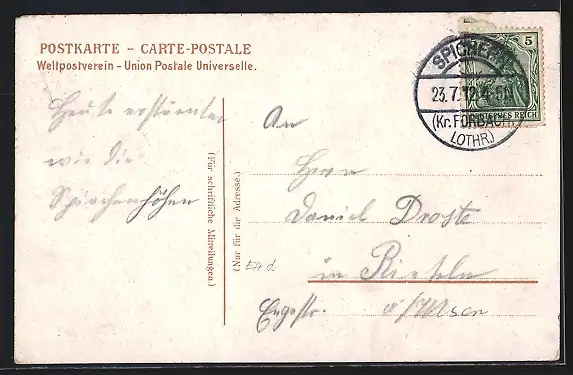 POSTKARTE – CARTE-POSTALE
Weltpostverein – Union Postale Universelle.
SPICHERN
23.7.12.4-5N
(Kr. FORBACH
LOTHR.)
5
DEUTSCHES REICH
Heute erstürmten
wir die
Spicherhöhen
(Für schriftliche Mitteilungen.)
(Nur für die Adresse.)
An
Herrn
Daniel Droste
in Rinteln
a/Weser